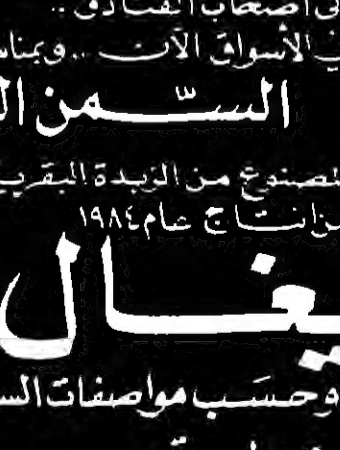 أصحاب الفنادق ..
الأسواق الآن .. وبمنا
السمن ال
لمصنوع من الزبدة البقري
من انتاج عام ١٩٨٤
يغال
وحسب مواصفات الس